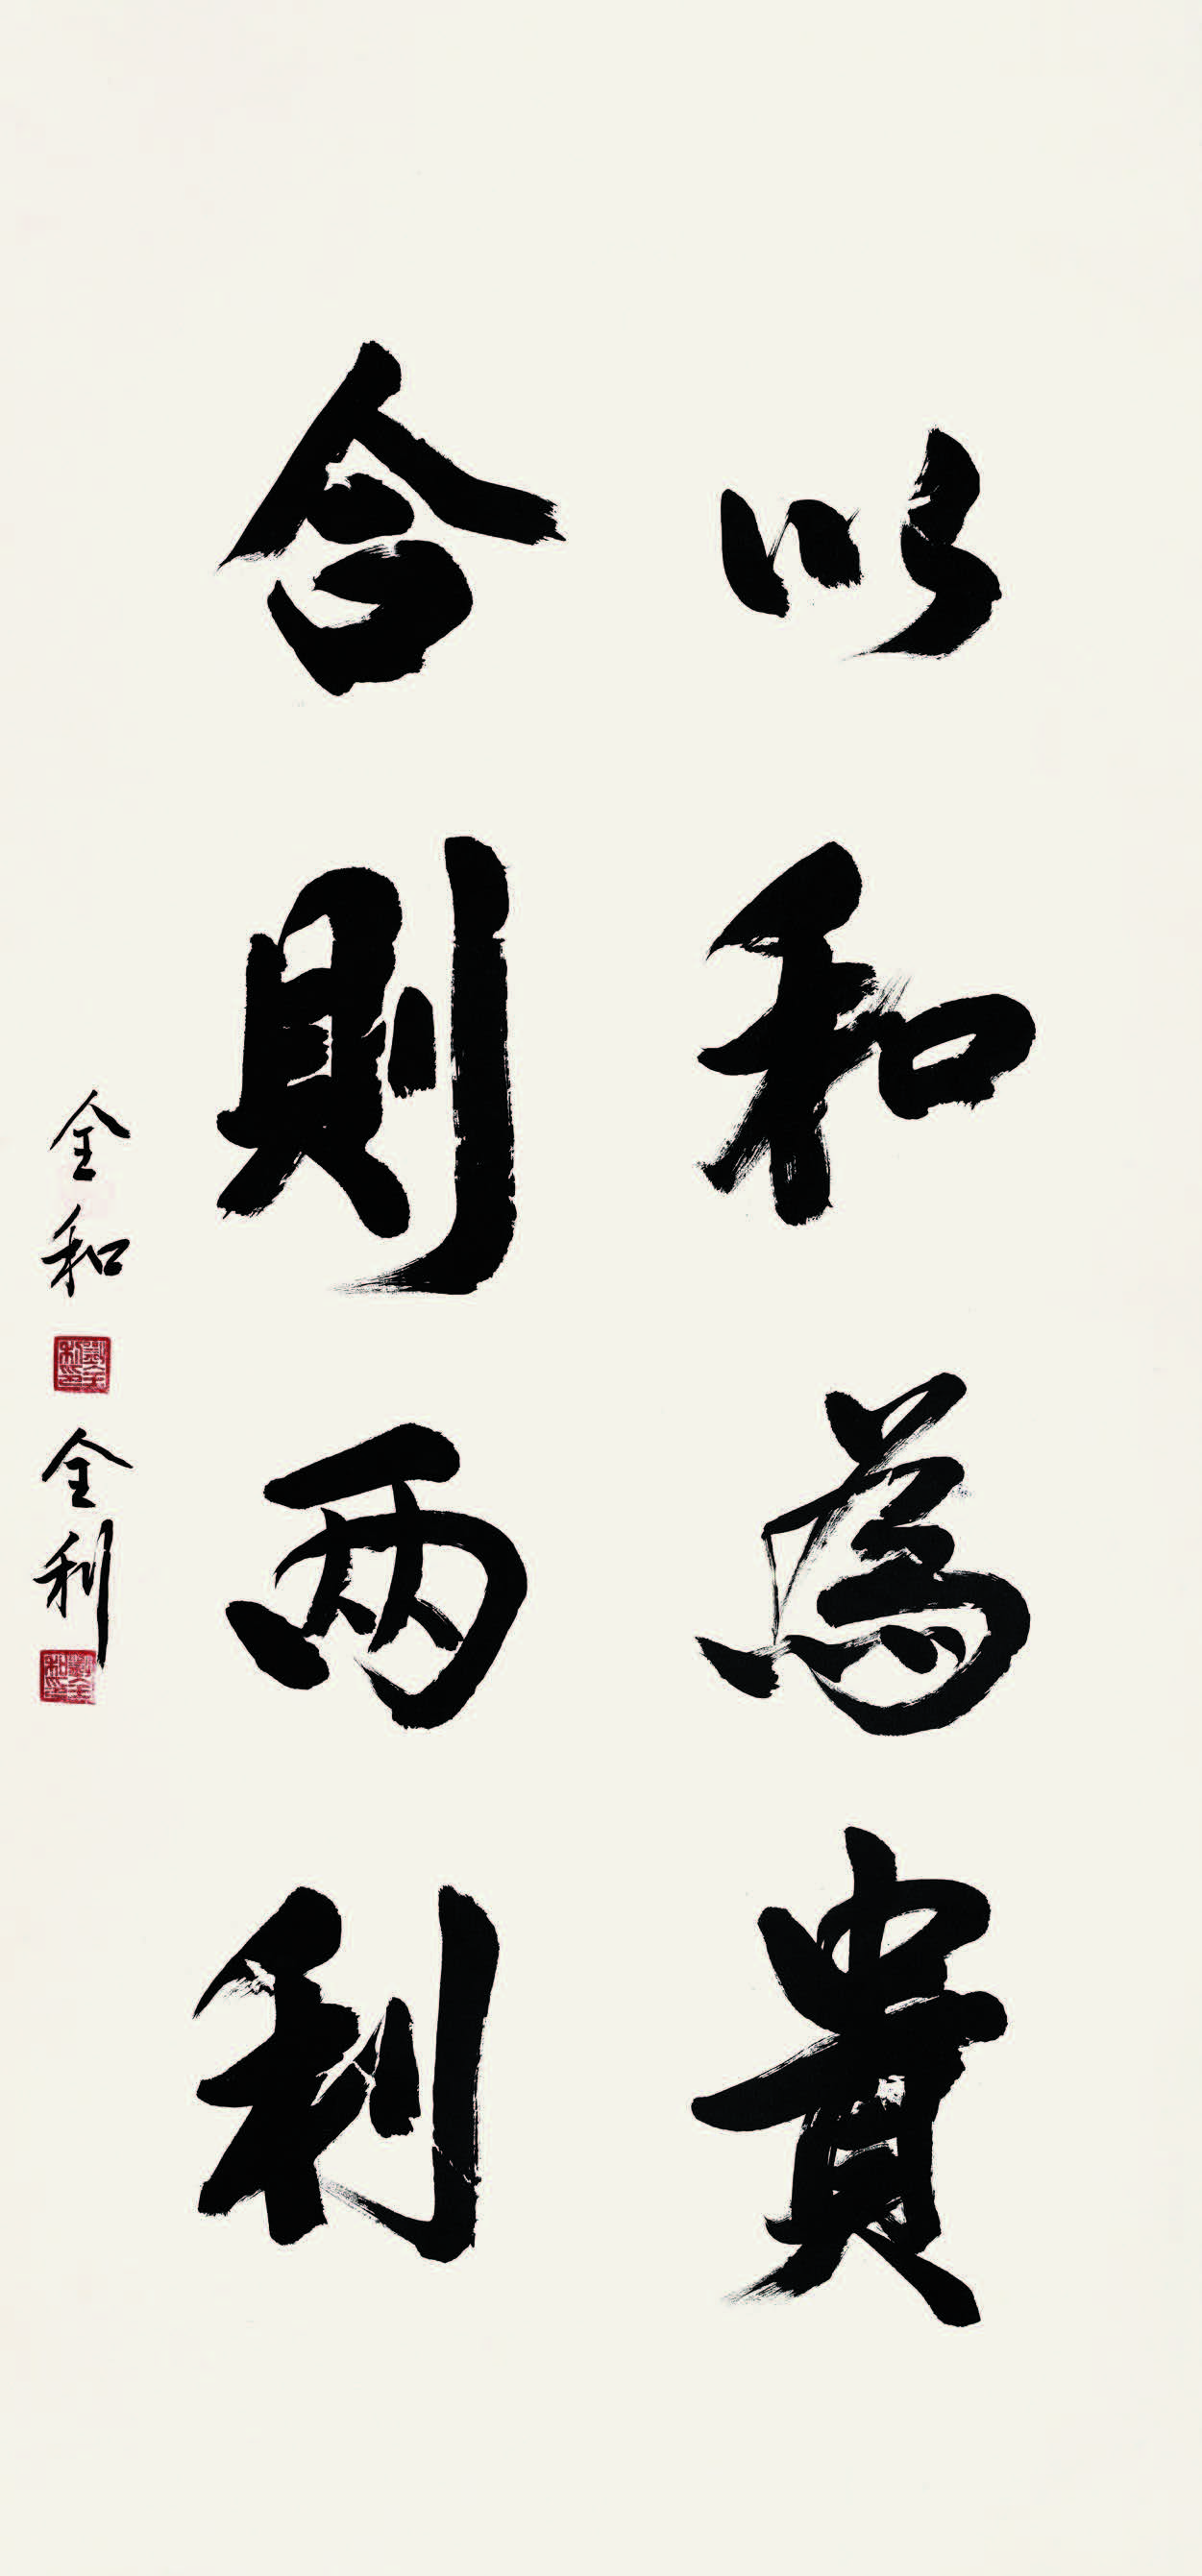 以和為貴
合則两利
全和
全利